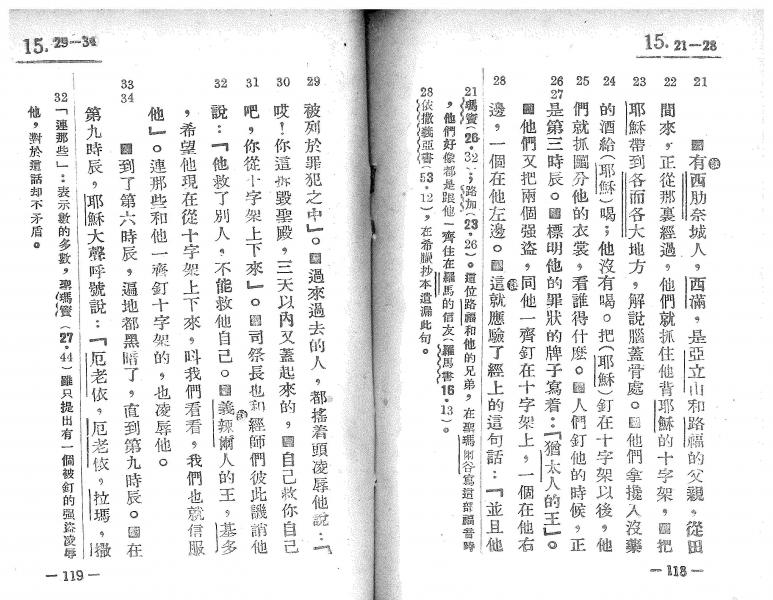 15. 21—28
21 有西肋奈城人,西滿,是亞立山和路福的父親,從田
22 間來,正從那裏經過,他們就抓住他背耶穌的十字架,把
23 耶穌帶到各而各大地方,解說腦蓋骨處。他們拿攙入沒藥
24 的酒給(耶穌)喝;他沒有喝。把(耶穌)釘在十字架以後,他
25 們就抓鬮分他的衣裳,看誰得什麽。人們釘他的時候,正
26 27 是第三時辰。標明他的罪狀的牌子寫着:『猶太人的王』。
他們又把兩個强盜,同他一齊釘在十字架上,一個在他右
28 邊,一個在他左邊。這就應驗了經上的這句話:『並且他
21 瑪竇(26·32);路加(23·26)。這位路福和他的兄弟,在聖瑪爾谷寫這部福音時
,他們好像都是跟他一齊住在羅馬的信友(羅馬書16·13)。
28 依撒義亞書(53·12),在希臘抄本遺漏此句。
—118—
15. 29—34
29 被列於罪犯之中』。過來過去的人,都搖着頭凌辱他說:『
30 哎!你這拆毀聖殿,三天以內又蓋起來的,自己救你自己
31 吧,你從十字架上下來』。司祭長也和經師們彼此譏誚他
32 說:『他救了別人,不能救他自己。義辣爾人的王,基多
,希望他現在從十字架上下來,叫我們看看,我們也就信服
他』。連那些和他一齊釘十字架的,也凌辱他。
33 34 到了第六時辰,遍地都黑暗了,直到第九時辰。在
第九時辰,耶穌大聲呼號說:『厄老依,厄老依,拉瑪,撒
32 「連那些」:表示數的多數,聖瑪竇(27·44)雖只提出有一個被釘的强盜凌辱
他,對於這話却不矛盾。
—119—